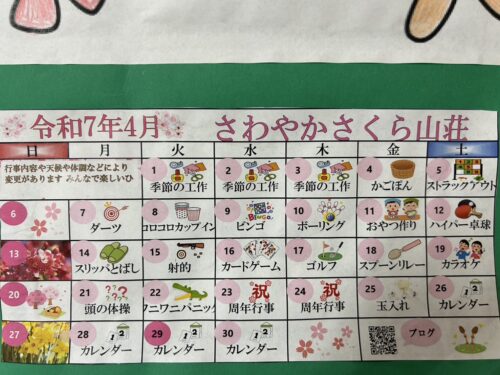 令和7年4月 さわやかさくら山荘
日 月 火 水 木 金 土
行事内容や天候や体調などにより
変更があります みんなで楽しいひ
1 2 3 4 5
季節の工作 季節の工作 季節の工作 かごぼん ストラックアウト
6 7 8 9 10 11 12
ダーツ コロコロカップイン ビンゴ ボーリング おやつ作り ハイパー卓球
13 14 15 16 17 18 19
スリッパとばし 射的 カードゲーム ゴルフ スプーンリレー カラオケ
20 21 22 23 24 25 26
祝 祝
頭の体操 ワニワニパニック 周年行事 周年行事 玉入れ カレンダー
27 28 29 30 ブログ
カレンダー カレンダー カレンダー